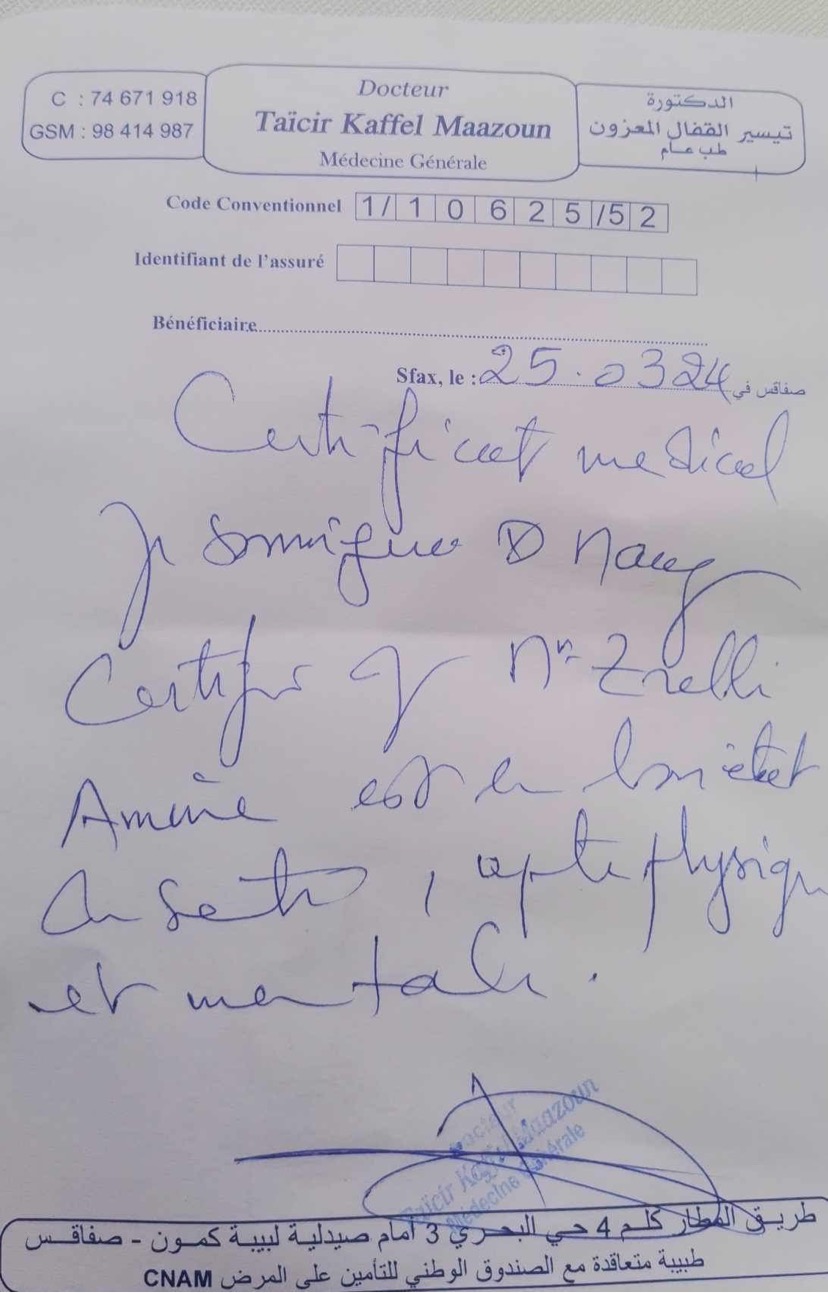 C : 74 671 918
GSM : 98 414 987
Docteur
Taïcir Kaffel Maazoun
Médecine Générale
الدكتورة
تيسير القفال المعزون
طب عام
Code Conventionnel 1/10625/52
Identifiant de l'assuré
Bénéficiaire
Sfax, le : 25.0324 صفاقس في
Certificat medical
Je Soussigné D
Certifie q Mr Zrelli
Amine est en bon état
de santé, apte physique
et mentale.
Docteur
Taïcir Kaffel Maazoun
Médecine Générale
طريق المطار كلم 4 حي البحري 3 أمام صيدلية لبيبة كمون - صفاقس
طبيبة متعاقدة مع الصندوق الوطني للتأمين على المرض CNAM